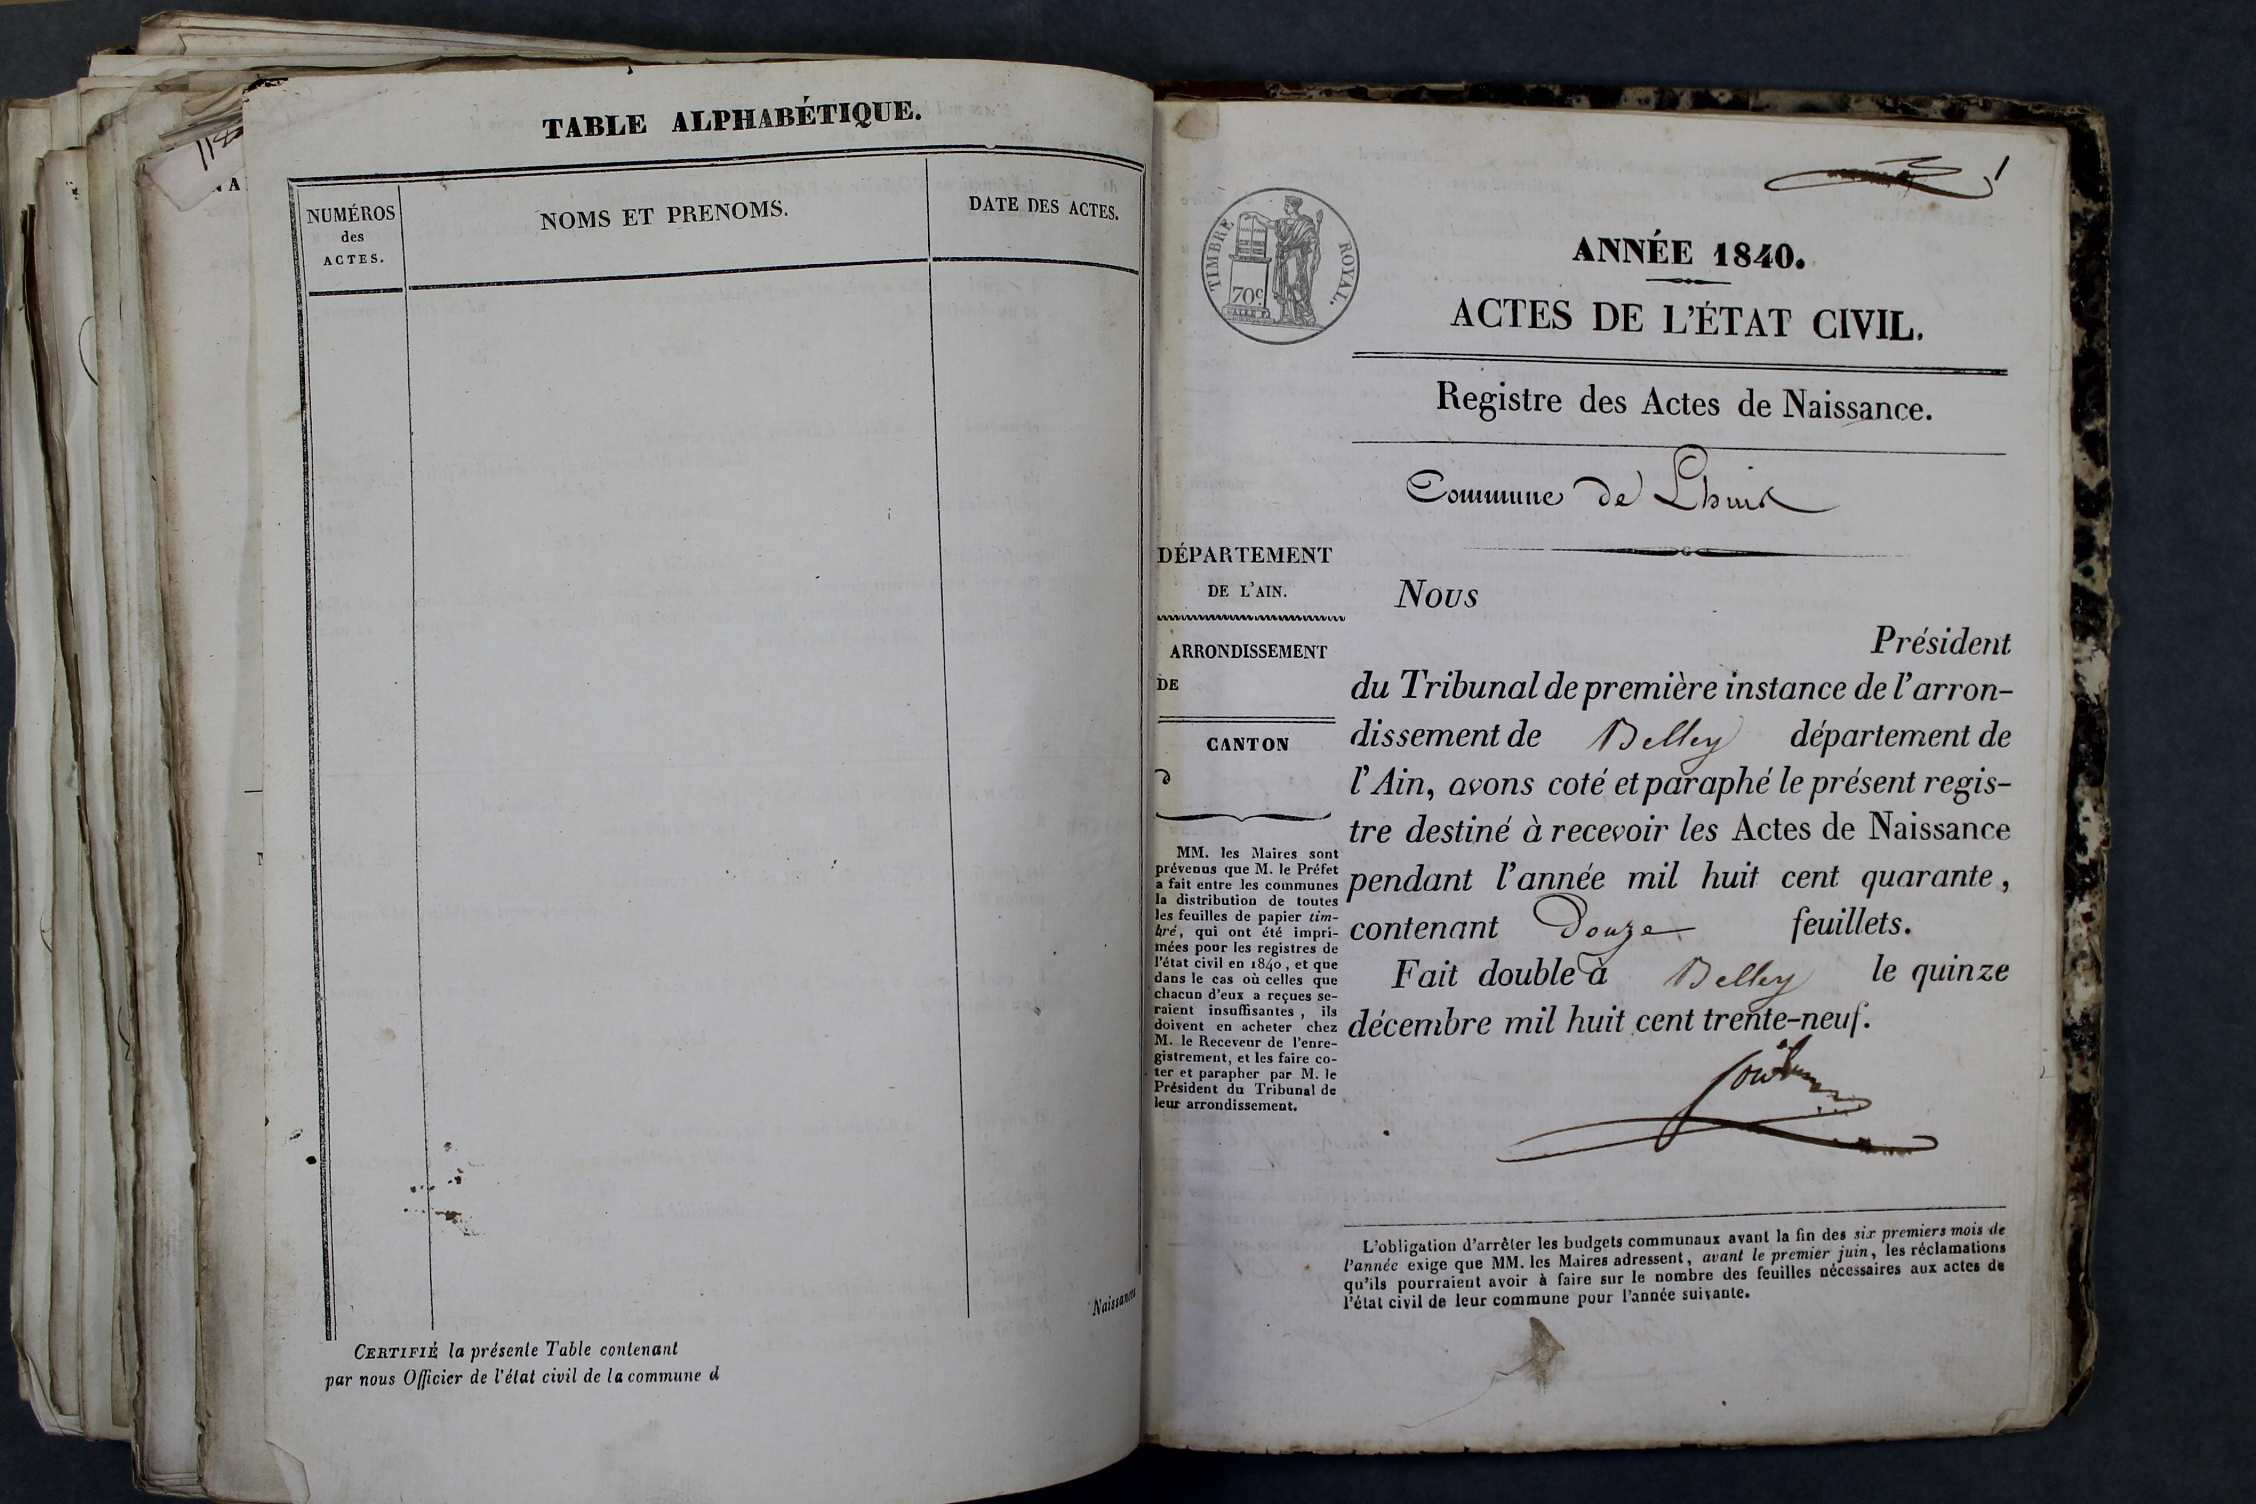 TABLE ALPHABÉTIQUE.
NUMÉROS
des
ACTES.
NOMS ET PRENOMS.
DATE DES ACTES.
Naissances
CERTIFIÉ la présente Table contenant
par nous Officier de l'état civil de la commune d
1
TIMBRE ROYAL.
70c
ANNÉE 1840.
ACTES DE L'ÉTAT CIVIL.
Registre des Actes de Naissance.
Commune de Lhuis
DÉPARTEMENT
DE L'AIN.
ARRONDISSEMENT
DE
CANTON
MM. les Maires sont
prévenus que M. le Préfet
a fait entre les communes
la distribution de toutes
les feuilles de papier tim-
bré, qui ont été impri-
mées pour les registres de
l'état civil en 1840, et que
dans le cas où celles que
chacun d'eux a reçues se-
raient insuffisantes, ils
doivent en acheter chez
M. le Receveur de l'enre-
gistrement, et les faire co-
ter et parapher par M. le
Président du Tribunal de
leur arrondissement.
Nous
Président
du Tribunal de première instance de l'arron-
dissement de Belley département de
l'Ain, avons coté et paraphé le présent regis-
tre destiné à recevoir les Actes de Naissance
pendant l'année mil huit cent quarante,
contenant Douze feuillets.
Fait double à Belley le quinze
décembre mil huit cent trente-neuf.
L'obligation d'arrêter les budgets communaux avant la fin des six premiers mois de
l'année exige que MM. les Maires adressent, avant le premier juin, les réclamations
qu'ils pourraient avoir à faire sur le nombre des feuilles nécessaires aux actes de
l'état civil de leur commune pour l'année suivante.